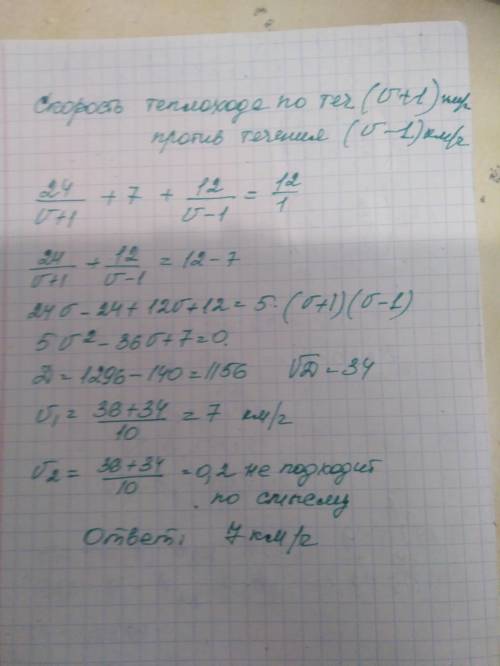 Скорость теплохода по теч (v+1) км/ч
против течения (v-1) км/ч
24/(v+1) + 7 + 12/(v-1) = 12/1
24/(v+1) + 12/(v-1) = 12-7
24v-24+12v+12=5·(v+1)(v-1)
5v²-36v+7=0.
D=1296-140=1156 √D=34
v₁= (36+34)/10 =7 км/ч
v₂= (36+34)/10 =0,2 не подходит
по смыслу
Ответ: 7 км/ч